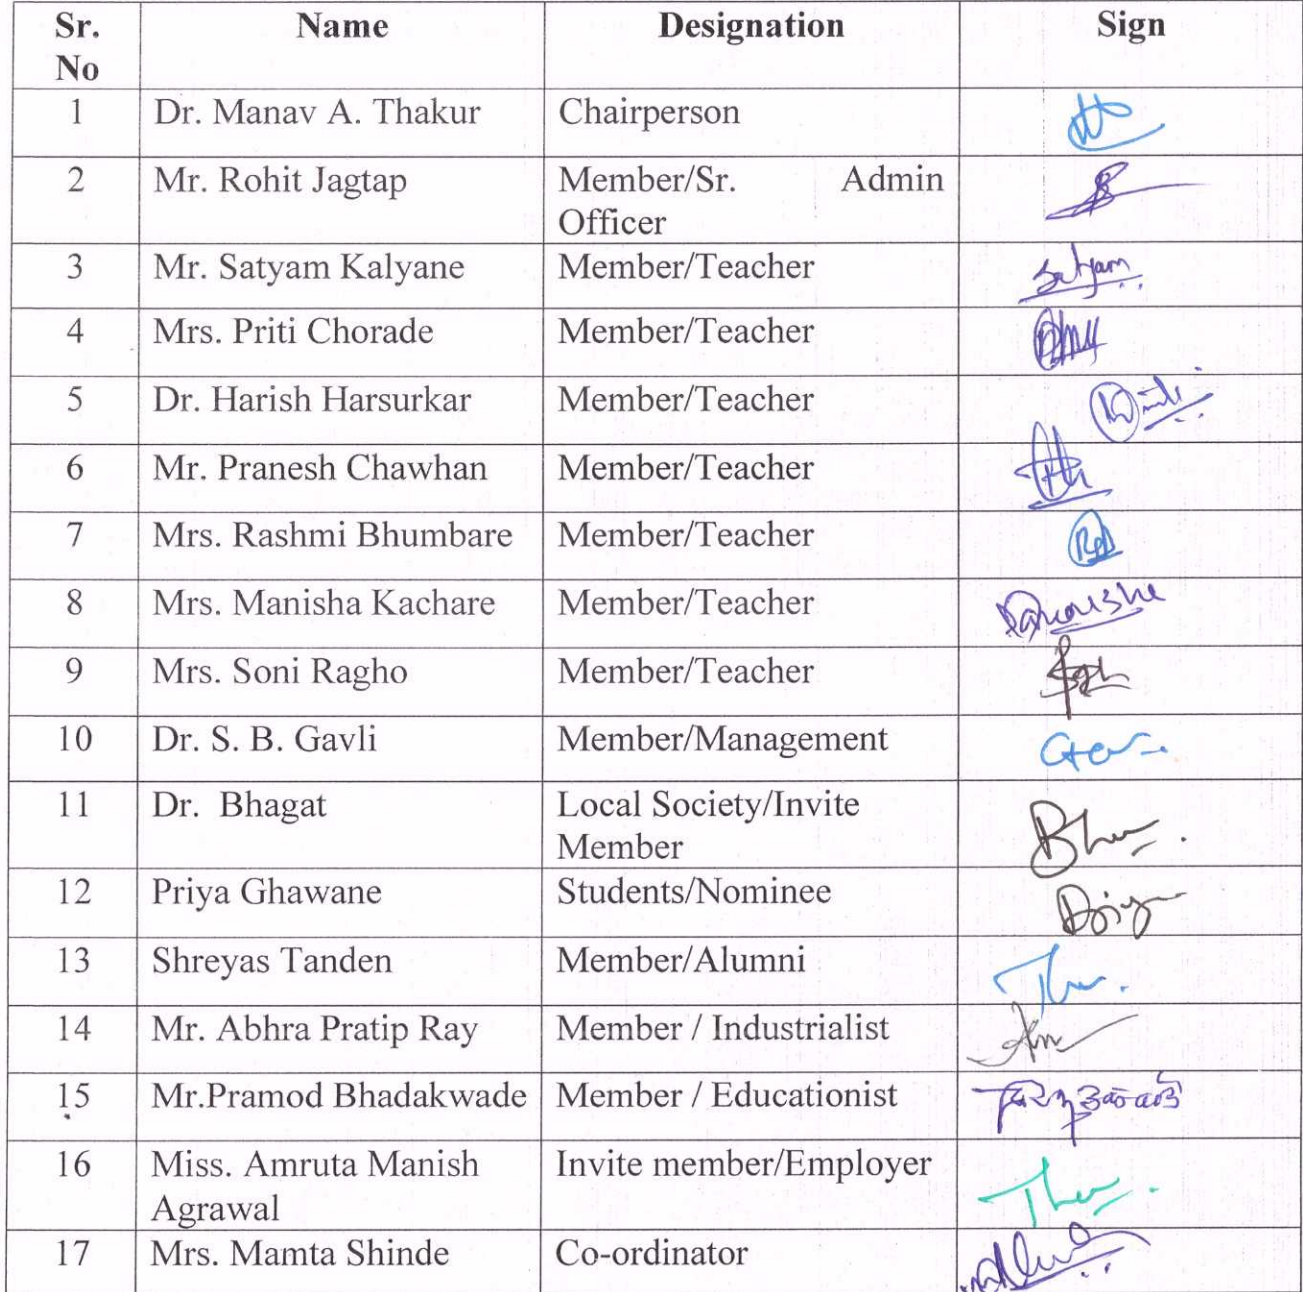 Sr. No Name Designation Sign
1 Dr. Manav A. Thakur Chairperson
2 Mr. Rohit Jagtap Member/Sr. Admin
Officer
3 Mr. Satyam Kalyane Member/Teacher Satyam
4 Mrs. Priti Chorade Member/Teacher
5 Dr. Harish Harsurkar Member/Teacher
6 Mr. Pranesh Chawhan Member/Teacher
7 Mrs. Rashmi Bhumbare Member/Teacher
8 Mrs. Manisha Kachare Member/Teacher
9 Mrs. Soni Ragho Member/Teacher
10 Dr. S. B. Gavli Member/Management
11 Dr. Bhagat Local Society/Invite
Member
12 Priya Ghawane Students/Nominee
13 Shreyas Tanden Member/Alumni
14 Mr. Abhra Pratip Ray Member / Industrialist
15 Mr.Pramod Bhadakwade Member / Educationist
16 Miss. Amruta Manish Invite member/Employer
Agrawal
17 Mrs. Mamta Shinde Co-ordinator